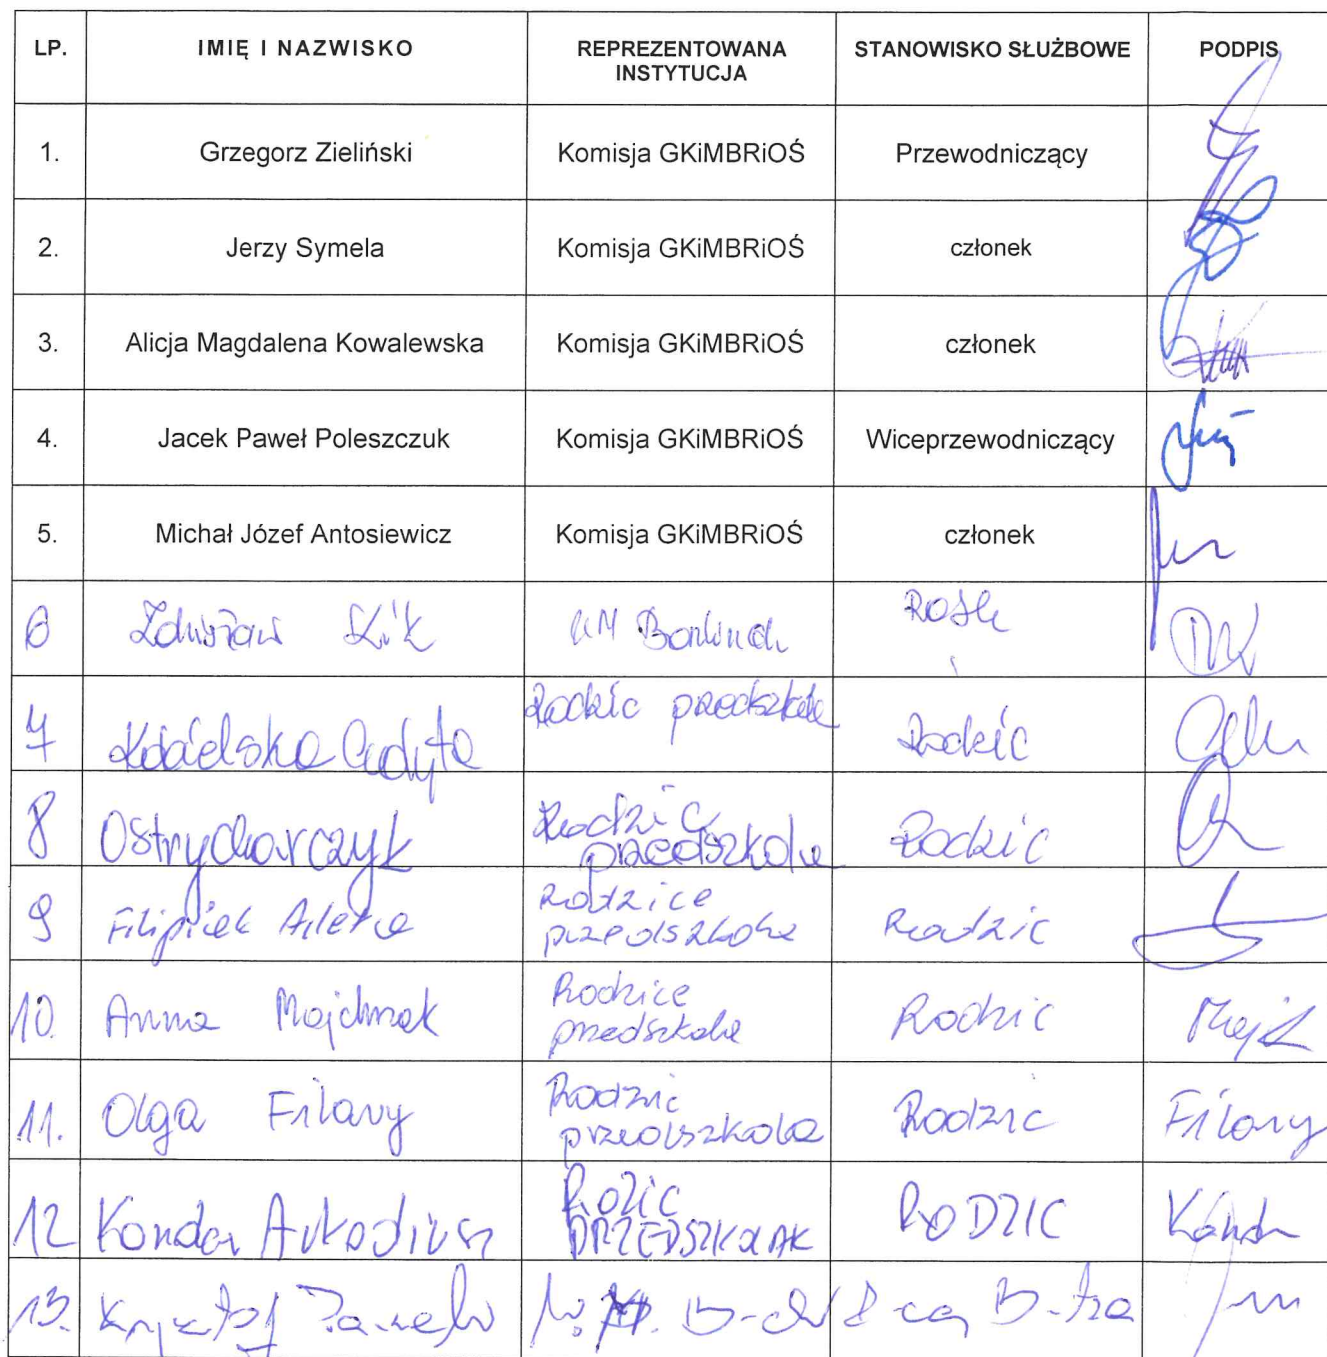 LP. IMIĘ I NAZWISKO REPREZENTOWANA INSTYTUCJA STANOWISKO SŁUŻBOWE PODPIS
1. Grzegorz Zieliński Komisja GKiMBRiOŚ Przewodniczący
2. Jerzy Symela Komisja GKiMBRiOŚ członek
3. Alicja Magdalena Kowalewska Komisja GKiMBRiOŚ członek
4. Jacek Paweł Poleszczuk Komisja GKiMBRiOŚ Wiceprzewodniczący
5. Michał Józef Antosiewicz Komisja GKiMBRiOŚ członek
6 Zdzisław
7 Rodzic Rodzic
8 Ostrycharczyk Rodzic przedszkola Rodzic
9 Filipiek Rodzice przedszkola Rodzic
10. Anna Majchrzak Rodzice przedszkola Rodzic
11. Olga Filary Rodzic przedszkola Rodzic Filary
12 Konda Arkadiusz Rozic PRZEDSZKOLAK RODZIC
13. Krzysztof